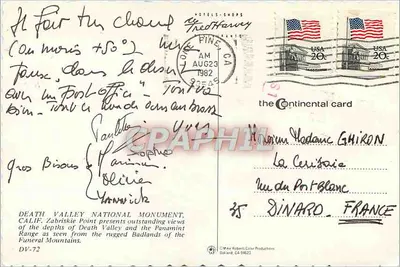 Il fait très chaud
(au moins +50°)
HOTELS-SHOPS
Fred Harvey
dans le désert
avec un "Post office" - Tout va
bien - Tout le monde
Yves
Gros Bisous
Sophie
Olivier
Yannick
LONE PINE, CA
AM
AUG 23
1982
USA
20c
USA
20c
the Continental card
Monsieur Madame GHIRON
La Cerisaie
rue du Port Blanc
35 DINARD. FRANCE
CPAPHIL
DEATH VALLEY NATIONAL MONUMENT,
CALIF. Zabriskie Point presents outstanding views
of the depths of Death Valley and the Panamint
Range as seen from the rugged Badlands of the
Funeral Mountains.
DV-72